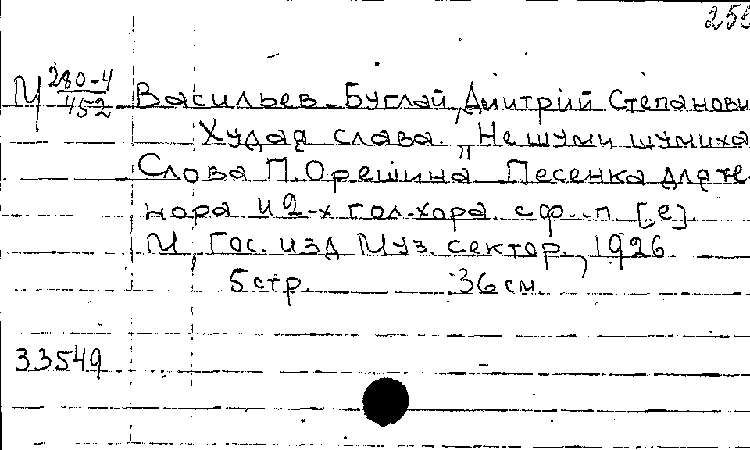 255
М 280-4 Васильев-Буглай, Дмитрий Степанови
452
Худая слава. „Не шуми шумиха
Слова П. Орешина Песенка для те-
нора и 2-х гол. хора с ф.-п. [e].
М, Гос. изд Муз. сектор, 1926.
5 стр. 36 см.
33549